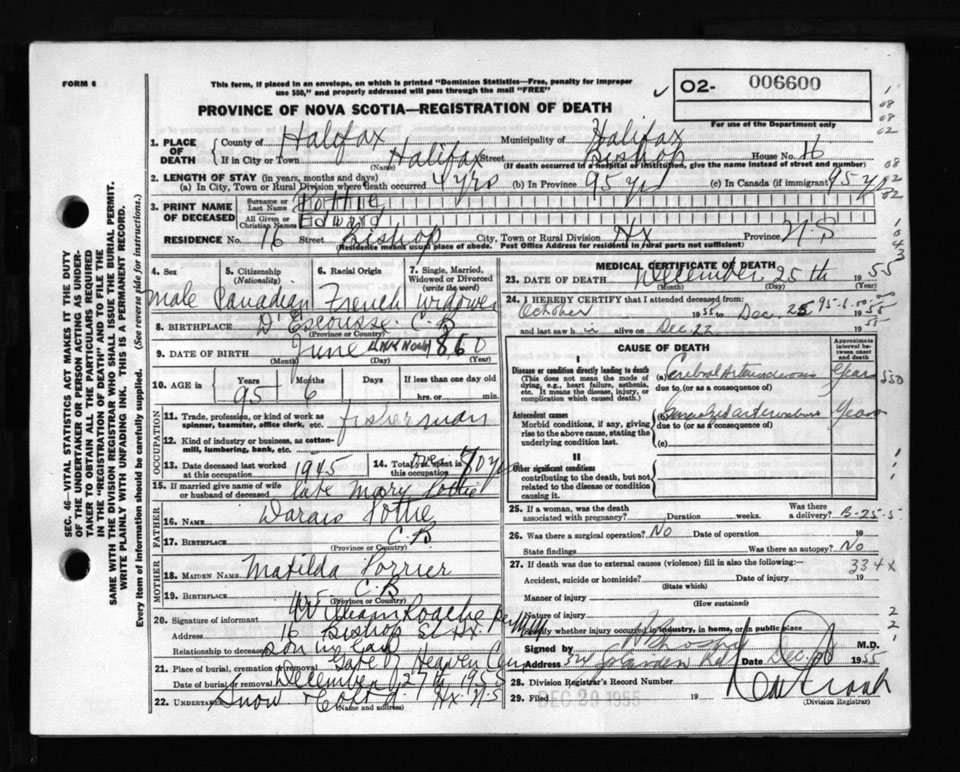 FORM 6
This form, if placed in an envelope, on which is printed "Dominion Statistics—Free, penalty for improper
use $50," and properly addressed will pass through the mail "FREE"
O2- 006600
For use of the Department only
PROVINCE OF NOVA SCOTIA—REGISTRATION OF DEATH
1. PLACE OF DEATH
County of Halifax Municipality of Halifax
If in City or Town Halifax Street Bishop House No. 16
(Name) (If death occurred in a hospital or institution, give name instead of street and number)
2. LENGTH OF STAY (in years, months and days)
(a) In City, Town or Rural Division where death occurred 4 yrs (b) In Province 95 yrs (c) In Canada (if immigrant) 95 yrs
3. PRINT NAME OF DECEASED
Surname or Last Name Pottie
All Given or Christian Names Edward
RESIDENCE No. 16 Street Bishop City, Town or Rural Division Hx Province N.S
(Residence means usual place of abode. Post Office Address for residents in rural parts not sufficient)
4. Sex 5. Citizenship (Nationality) 6. Racial Origin 7. Single, Married, Widowed or Divorced (write the word)
male Canadian French widower
8. BIRTHPLACE D'Escousse C.B
9. DATE OF BIRTH June UNKNOWN 1860
(Month) (Day) (Year)
10. AGE in Years Months Days If less than one day old
95 6 hrs. or min.
OCCUPATION
11. Trade, profession, or kind of work as spinner, teamster, office clerk, etc. fisherman
12. Kind of industry or business, as cotton-mill, lumbering, bank, etc.
13. Date deceased last worked at this occupation 1945
14. Total yrs. spent in this occupation 70 yrs
15. If married give name of wife or husband of deceased late Mary Pottie
FATHER
16. NAME Pottie
17. BIRTHPLACE C.B.
(Province or Country)
MOTHER
18. MAIDEN NAME Matilda Porrier
19. BIRTHPLACE C.B
(Province or Country)
20. Signature of informant William Roache per
Address 16 Bishop St Hx.
Relationship to deceased son in law
21. Place of burial, cremation or removal Gate of Heaven Cem
Date of burial or removal December 27th 1955
22. UNDERTAKER Snow & Co Ltd Hx N.S
(Name and address)
MEDICAL CERTIFICATE OF DEATH
23. DATE OF DEATH December 25th 1955
(Month) (Day) (Year)
24. I HEREBY CERTIFY that I attended deceased from:
October 1955 to Dec. 25 1955
and last saw h im alive on Dec. 22 1955
CAUSE OF DEATH
Approximate interval between onset and death
I
Disease or condition directly leading to death
(This does not mean the mode of dying, e.g., heart failure, asthenia, etc. It means the disease, injury, or complication which caused death.)
(a) Cerebral Arteriosclerosis Years
due to (or as a consequence of)
Antecedent causes
Morbid conditions, if any, giving rise to the above cause, stating the underlying condition last.
(b) Generalized arteriosclerosis Years
due to (or as a consequence of)
(c)
II
Other significant conditions
contributing to the death, but not related to the disease or condition causing it.
25. If a woman, was the death associated with pregnancy? Duration weeks. Was there a delivery?
B-25-5
26. Was there a surgical operation? No Date of operation 19
State findings Was there an autopsy? No
27. If death was due to external causes (violence) fill in also the following:—
334x
Accident, suicide or homicide? Date of injury 19
(State which)
Manner of injury
(How sustained)
Nature of injury
Specify whether injury occurred in industry, in home, or in public place
Signed by M.D.
Address Date Dec. 1955
28. Division Registrar's Record Number
29. Filed DEC 29 1955 19
(Division Registrar)
SEC. 46—VITAL STATISTICS ACT MAKES IT THE DUTY
OF THE UNDERTAKER OR PERSON ACTING AS UNDERTAKER TO OBTAIN ALL THE PARTICULARS REQUIRED
IN THE "REGISTRATION OF DEATH" AND TO FILE THE
SAME WITH THE DIVISION REGISTRAR WHO SHALL ISSUE THE BURIAL PERMIT.
WRITE PLAINLY WITH UNFADING INK. THIS IS A PERMANENT RECORD.
Every item of information should be carefully supplied. (See reverse side for instructions.)